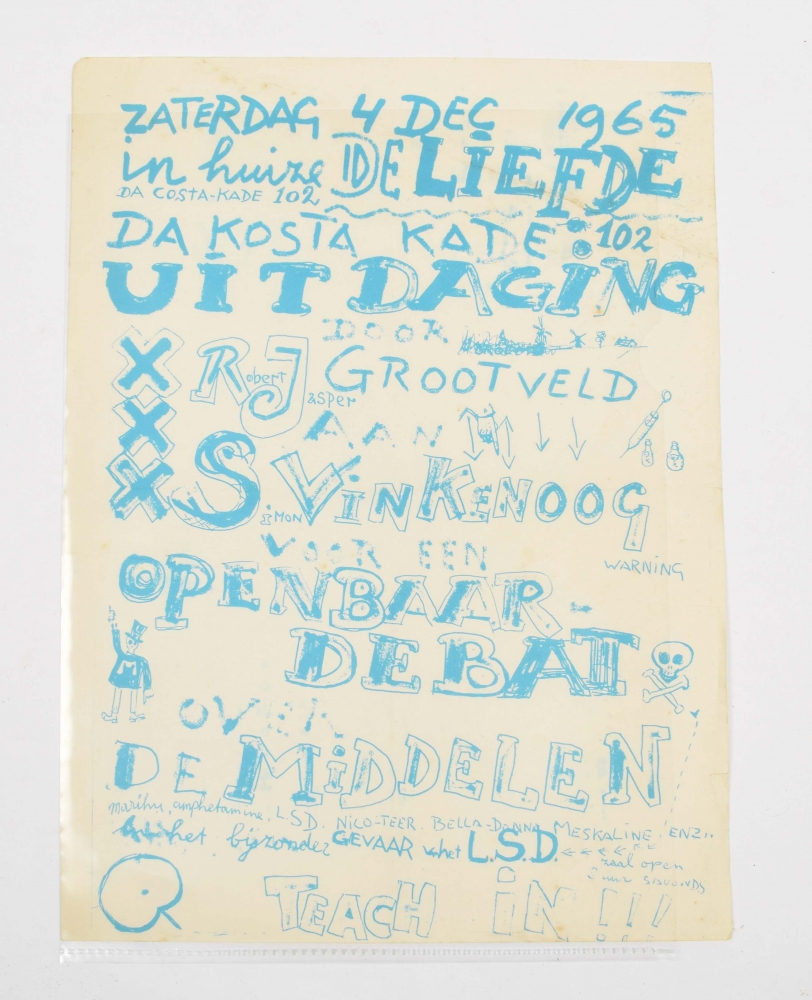 ZATERDAG 4 DEC 1965
in huize DE LIEFDE
DA COSTA-KADE 102
DA KOSTA KADE : 102
UITDAGING
DOOR
XXX
Robert Jasper GROOTVELD
AAN
Simon VINKENOOG
VOOR EEN
WARNING
OPENBAAR-
DEBAT
OVER
DE MiDDELEN
marihu, amphetamine, L.S.D. NICO-TEER. BELLA-DONNA, MESKALINE, ENZ..
het bijzonder GEVAAR v. het L.S.D.
zaal open
uur s'avonds
TEACH iN !!!